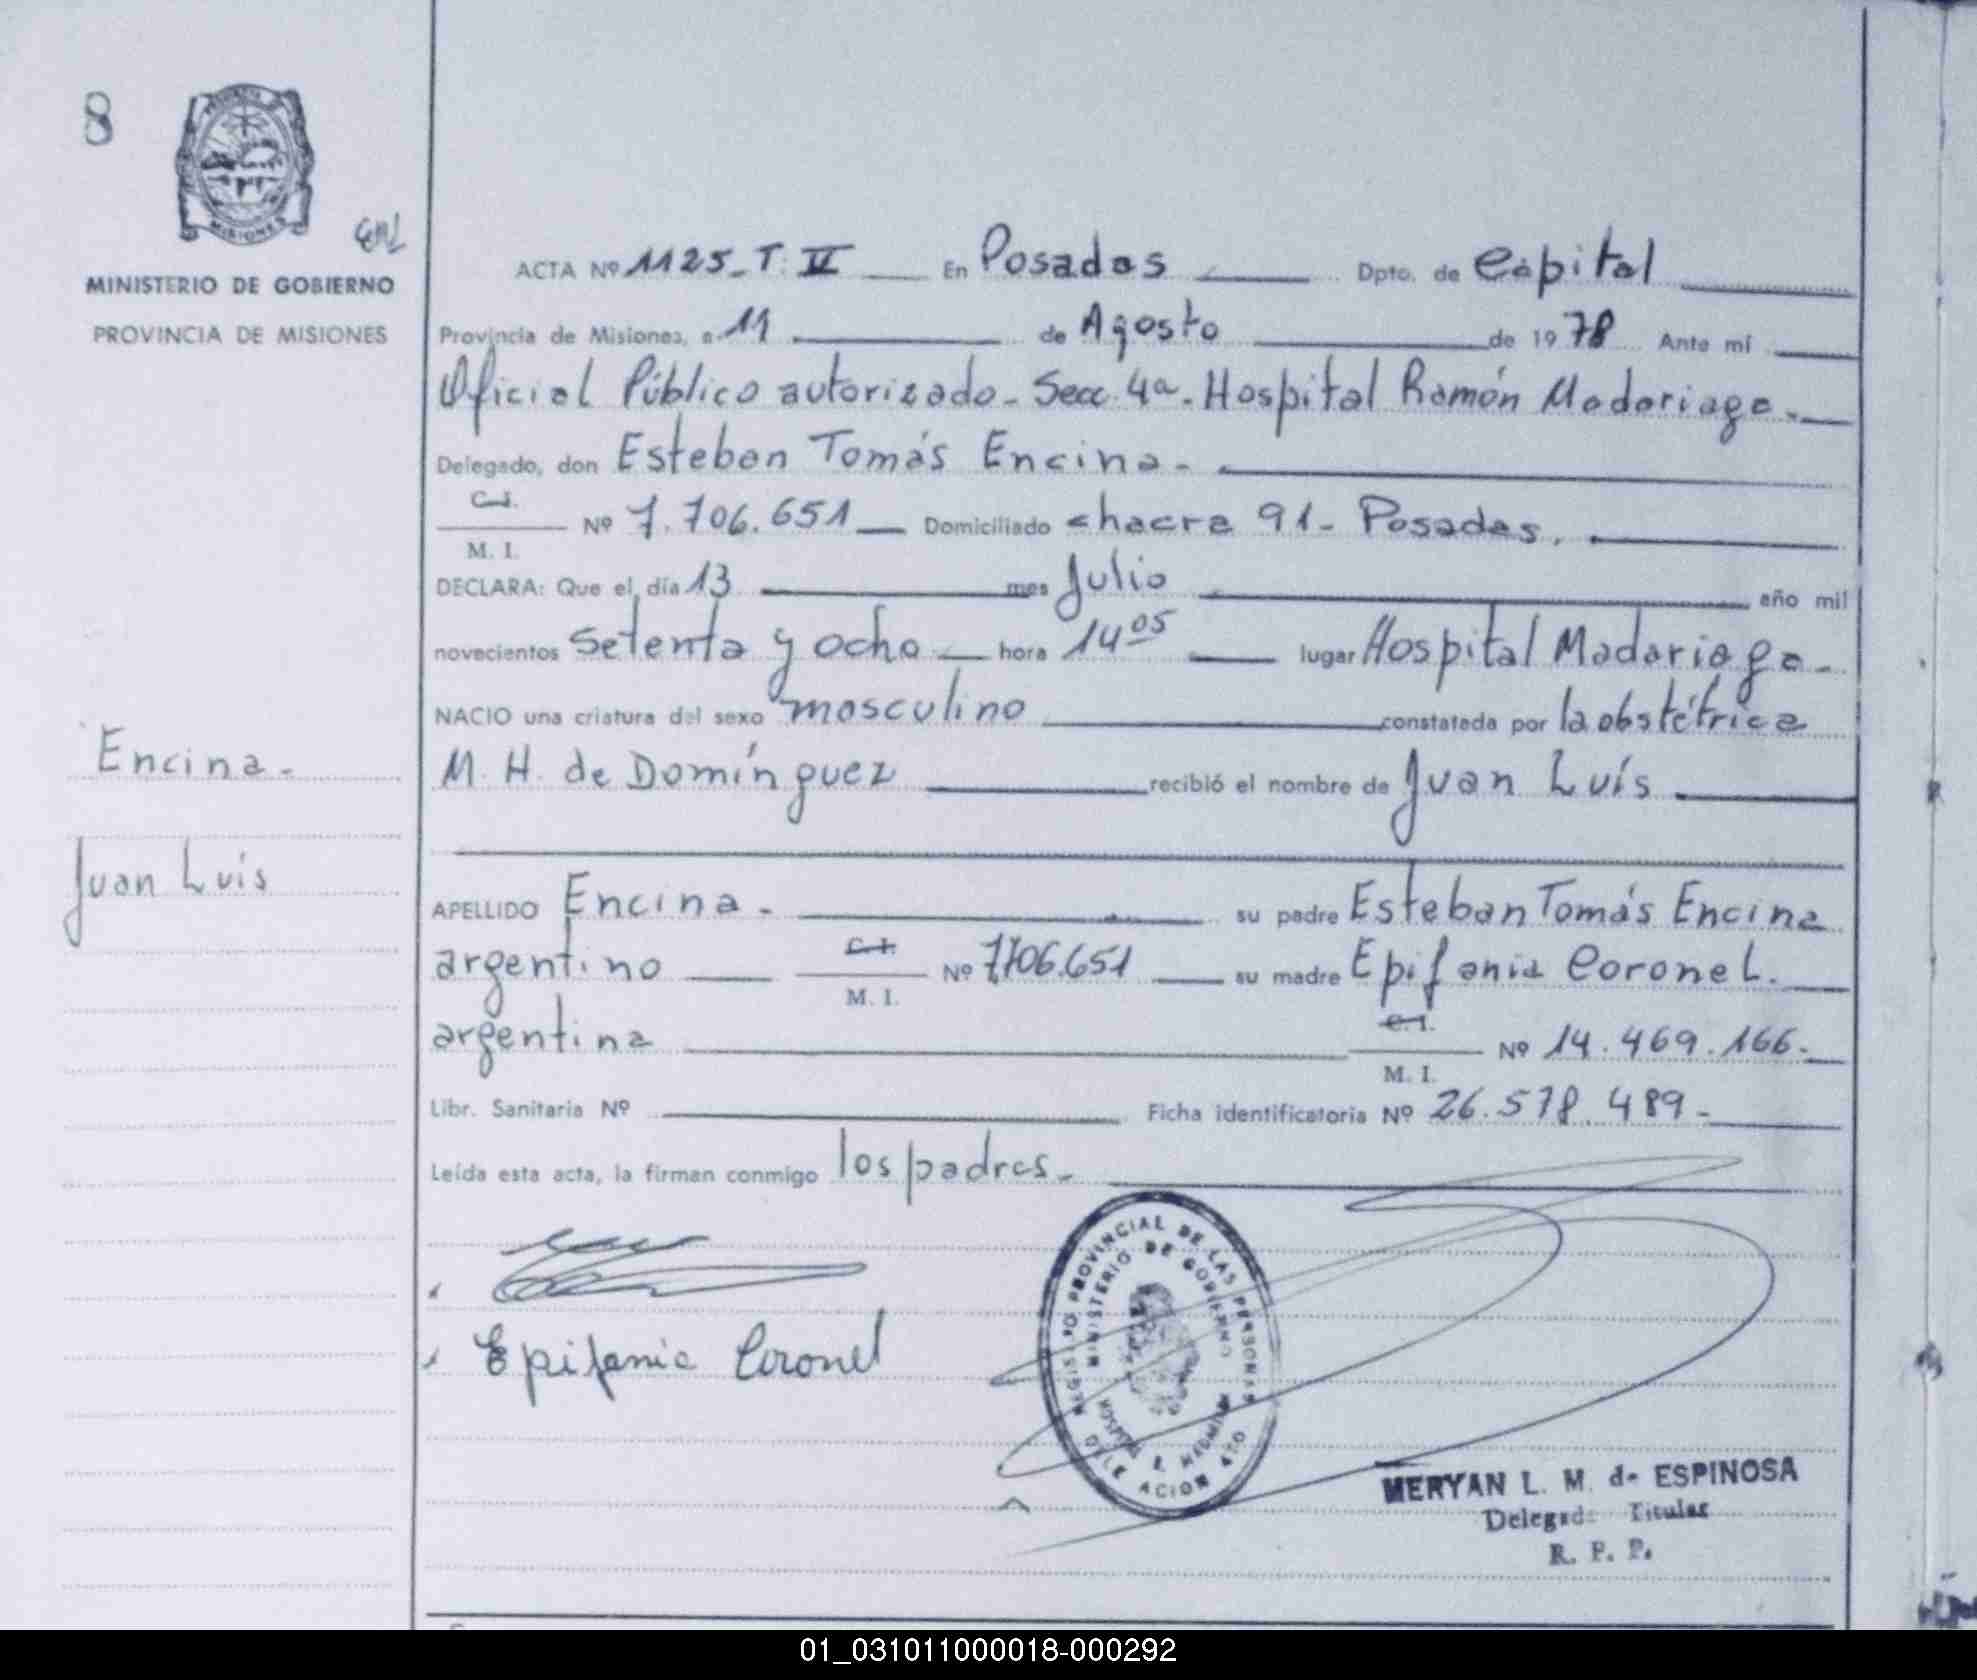 8
PROVINCIA D
MISIONES
MINISTERIO DE GOBIERNO
PROVINCIA DE MISIONES
Encina-
Juan Luis
ACTA Nº 1125_T. VI En Posadas Dpto. de Capital
Provincia de Misiones, a 11 de Agosto de 1978 Ante mí
Oficial Público autorizado- Secc. 4a. Hospital Ramón Madariaga-
Delegado, don Esteban Tomás Encina-
C.I.
Nº 7.706.651 Domiciliado chacra 91- Posadas.
M. I.
DECLARA: Que el día 13 mes Julio año mil
novecientos setenta y ocho hora 14 05 lugar Hospital Madariaga-
NACIO una criatura del sexo masculino constatada por la obstétrica
M. H. de Domínguez recibió el nombre de Juan Luís
APELLIDO Encina- su padre Esteban Tomás Encina
C.I.
argentino Nº 7706.651 su madre Epifania Coronel.
M. I.
C.I.
argentina Nº 14.469.166-
M. I.
Libr. Sanitaria Nº Ficha identificatoria Nº 26.578.489-
Leída esta acta, la firman conmigo los padres-
Epifania Coronel
REGISTRO PROVINCIAL DE LAS PERSONAS
MINISTERIO DE GOBIERNO
MERYAN L. M. de ESPINOSA
Delegada Titular
R. P. P.
01_031011000018-000292